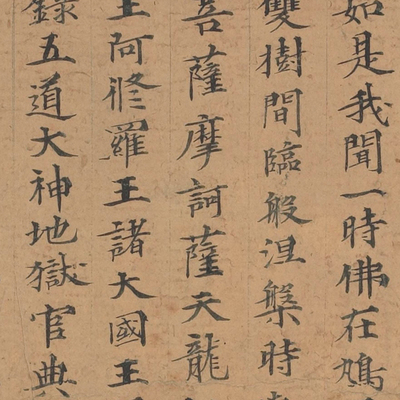 如是我聞一時佛在鳩
雙樹間臨般涅槃時
菩薩摩訶薩天龍
王阿修羅王諸大國王
錄五道大神地獄官典